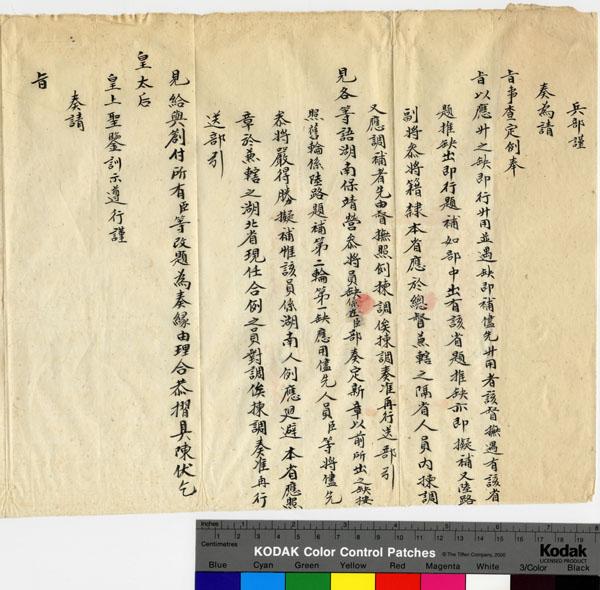 兵部謹
奏為請
旨事查定例奉
旨以應升之缺即行升用並遇缺即補儘先升用者該督撫遇有該省
題推缺出即行題補如部中出有該省題推缺亦即擬補又陸路
副將叅將籍隸本省應於總督兼轄之隔省人員內揀調
又應調補者先由督撫照例揀調俟揀調奏准再行送部引
見各等語湖南保靖營叅將員缺係在臣部奏定新章以前所出之缺按
照舊輪係陸路題補第二輪第一缺應用儘先人員臣等將儘先
叅將嚴得勝擬補惟該員係湖南人例應迴避本省應照
章於兼轄之湖北省現任合例之員對調俟揀調奏准再行
送部引
見給與劄付所有臣等改題為奏緣由理合恭摺具陳伏乞
皇太后
皇上聖鑒訓示遵行謹
奏請
旨
Inches 1 2 3 4 5 6 7
Centimetres 1 2 3 4 5 6 7 8 9 10 11 12 13 14 15 16 17 18 19
KODAK Color Control Patches
© The Tiffen Company, 2000
Kodak
LICENSED PRODUCT
Blue Cyan Green Yellow Red Magenta White 3/Color Black